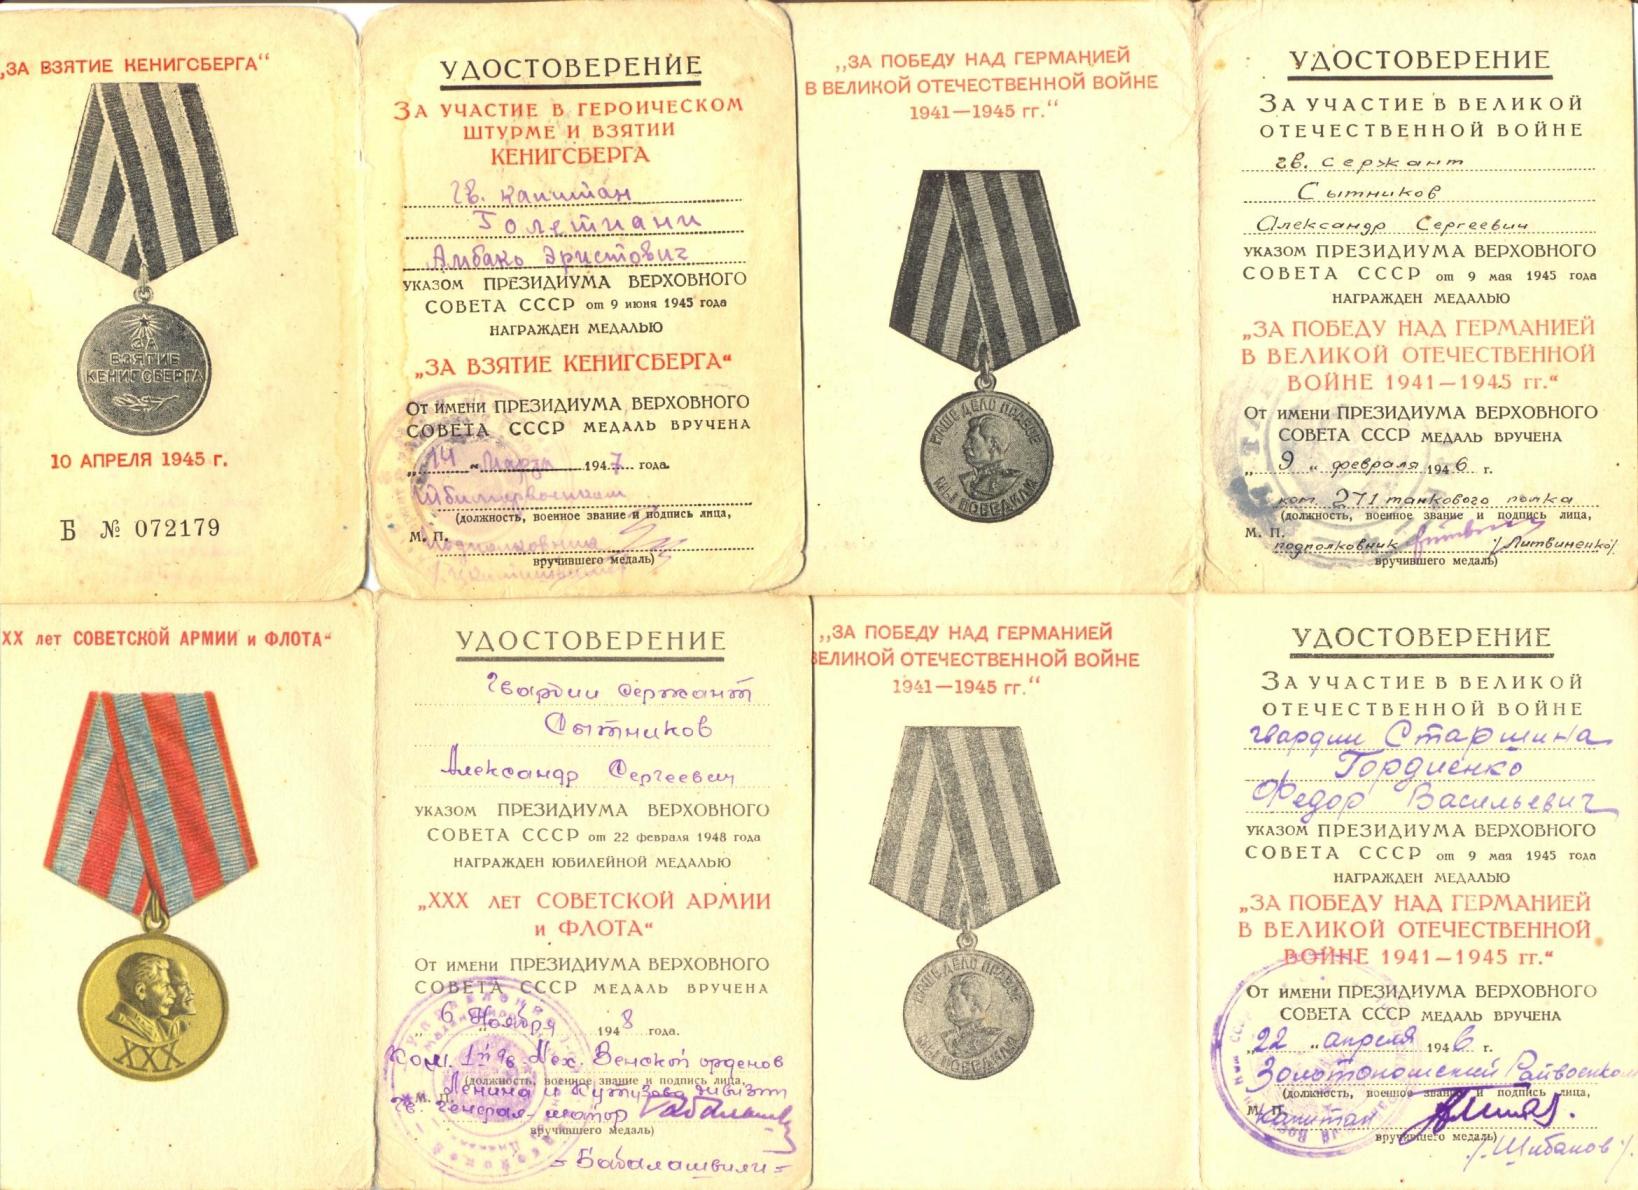 „ЗА ВЗЯТИЕ КЕНИГСБЕРГА“
ЗА
ВЗЯТИЕ
КЕНИГСБЕРГА
10 АПРЕЛЯ 1945 г.
Б № 072179
УДОСТОВЕРЕНИЕ
ЗА УЧАСТИЕ В ГЕРОИЧЕСКОМ
ШТУРМЕ И ВЗЯТИИ
КЕНИГСБЕРГА
Гв. капитан
Голетиани
Амбако Эристович
УКАЗОМ ПРЕЗИДИУМА ВЕРХОВНОГО
СОВЕТА СССР от 9 июня 1945 года
НАГРАЖДЕН МЕДАЛЬЮ
„ЗА ВЗЯТИЕ КЕНИГСБЕРГА“
ОТ ИМЕНИ ПРЕЗИДИУМА ВЕРХОВНОГО
СОВЕТА СССР МЕДАЛЬ ВРУЧЕНА
„14“ марта 1947 года.
(должность, военное звание и подпись лица,
М. П. Подполковник
вручившего медаль)
„ЗА ПОБЕДУ НАД ГЕРМАНИЕЙ
В ВЕЛИКОЙ ОТЕЧЕСТВЕННОЙ ВОЙНЕ
1941—1945 гг.“
НАШЕ ДЕЛО ПРАВОЕ
МЫ ПОБЕДИЛИ
УДОСТОВЕРЕНИЕ
ЗА УЧАСТИЕ В ВЕЛИКОЙ
ОТЕЧЕСТВЕННОЙ ВОЙНЕ
гв. сержант
Сытников
Александр Сергеевич
УКАЗОМ ПРЕЗИДИУМА ВЕРХОВНОГО
СОВЕТА СССР от 9 мая 1945 года
НАГРАЖДЕН МЕДАЛЬЮ
„ЗА ПОБЕДУ НАД ГЕРМАНИЕЙ
В ВЕЛИКОЙ ОТЕЧЕСТВЕННОЙ
ВОЙНЕ 1941—1945 гг.“
ОТ ИМЕНИ ПРЕЗИДИУМА ВЕРХОВНОГО
СОВЕТА СССР МЕДАЛЬ ВРУЧЕНА
„9“ февраля 1946 г.
ком. 271 танкового полка
(должность, военное звание и подпись лица,
М. П.
подполковник /Литвиненко/
вручившего медаль)
XXX лет СОВЕТСКОЙ АРМИИ и ФЛОТА“
XXX
УДОСТОВЕРЕНИЕ
Гвардии сержант
Сытников
Александр Сергеевич
УКАЗОМ ПРЕЗИДИУМА ВЕРХОВНОГО
СОВЕТА СССР от 22 февраля 1948 года
НАГРАЖДЕН ЮБИЛЕЙНОЙ МЕДАЛЬЮ
„XXX ЛЕТ СОВЕТСКОЙ АРМИИ
И ФЛОТА“
ОТ ИМЕНИ ПРЕЗИДИУМА ВЕРХОВНОГО
СОВЕТА СССР МЕДАЛЬ ВРУЧЕНА
„6“ Ноября 1948 года.
Ком. Мех. Венской орденов
(должность, военное звание и подпись лица,
Ленина и Кутузова дивизии
М. П.
Гв. генерал-майор
вручившего медаль)
-Бабалашвили-
„ЗА ПОБЕДУ НАД ГЕРМАНИЕЙ
ВЕЛИКОЙ ОТЕЧЕСТВЕННОЙ ВОЙНЕ
1941—1945 гг.“
НАШЕ ДЕЛО ПРАВОЕ
МЫ ПОБЕДИЛИ
УДОСТОВЕРЕНИЕ
ЗА УЧАСТИЕ В ВЕЛИКОЙ
ОТЕЧЕСТВЕННОЙ ВОЙНЕ
гвардии Старшина
Гордиенко
Федор Васильевич
УКАЗОМ ПРЕЗИДИУМА ВЕРХОВНОГО
СОВЕТА СССР от 9 мая 1945 года
НАГРАЖДЕН МЕДАЛЬЮ
„ЗА ПОБЕДУ НАД ГЕРМАНИЕЙ
В ВЕЛИКОЙ ОТЕЧЕСТВЕННОЙ
ВОЙНЕ 1941—1945 гг.“
ОТ ИМЕНИ ПРЕЗИДИУМА ВЕРХОВНОГО
СОВЕТА СССР МЕДАЛЬ ВРУЧЕНА
„22“ апреля 1946 г.
Золотоношский Райвоенком
(должность, военное звание и подпись лица,
М. П.
капитан
вручившего медаль)
/Шибанов/.